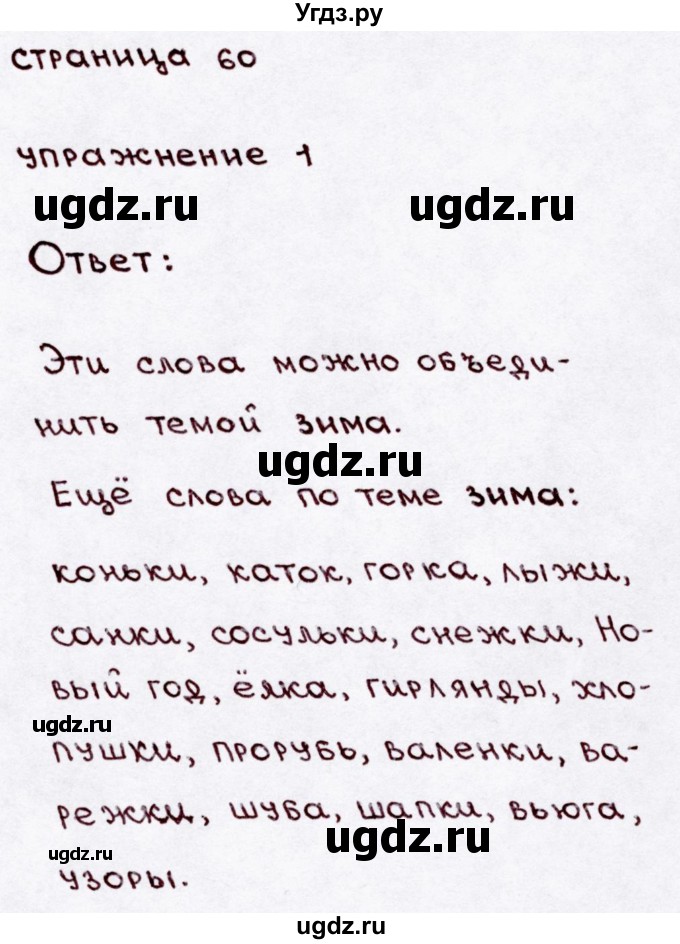 Угдз.ру
страница 60
упражнение 1
ugdz.ru ugdz.ru
Ответ:
Эти слова можно объеди-
нить темой зима.
ugdz.ru
Ещё слова по теме зима:
коньки, каток, горка, лыжи,
санки, сосульки, снежки, Но-
вый год, ёлка, гирлянды, хло-
ugdz.ru
пушки, прорубь, валенки, ва-
режки, шуба, шапки, вьюга,
ugdz.ru
ugdz.ru
узоры.
ugdz.ru